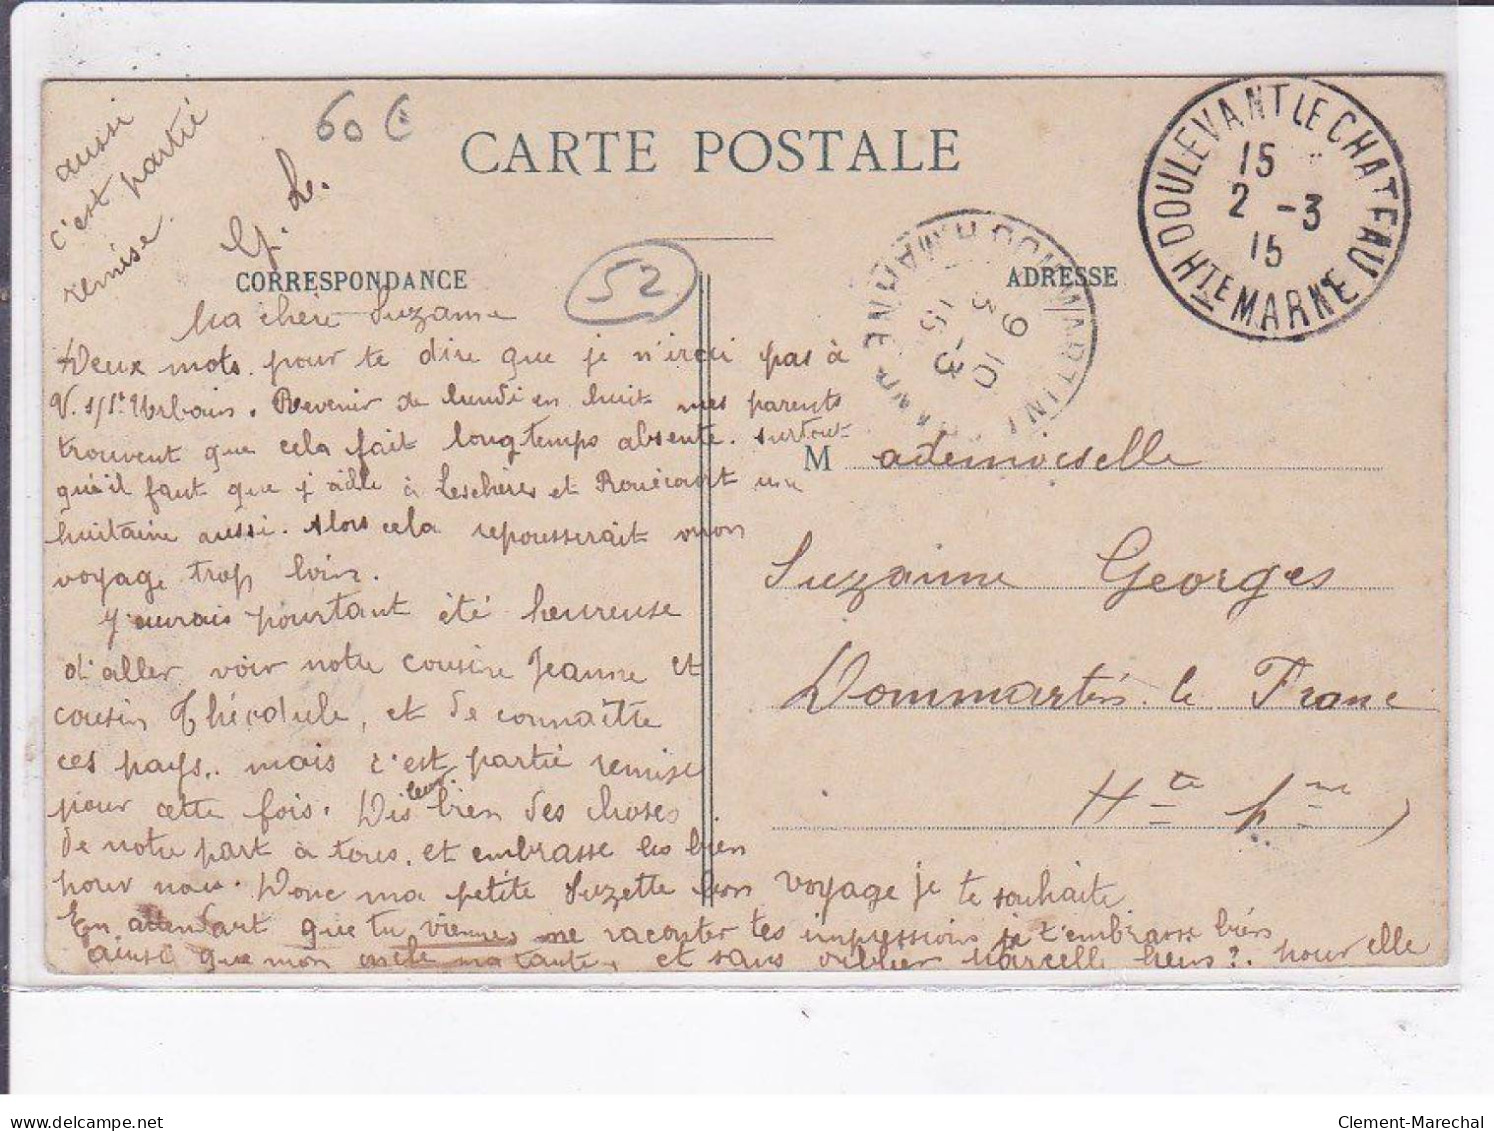 60 €
CARTE POSTALE
CORRESPONDANCE
52
ADRESSE
DOULEVANT LE CHATEAU
HTE MARNE
15
2 - 3
15
9 10
3 -3
15
Ma chère Suzanne
Deux mots pour te dire que je n'irai pas à
V. s/St Urbain. Revenir de lundi en huit mes parents
trouvent que cela fait longtemps absente. surtout
qu'il faut que j'aille à Leschères et Rouécourt une
huitaine aussi. Alors cela repousserait mon
voyage trop loin.
J'aurais pourtant été heureuse
d'aller voir notre cousine Jeanne et
cousin Thécdule, et de connaître
ces pays.. mais c'est partie remise
pour cette fois. Dis leur bien des choses
de notre part à tous. et embrasse les bien
pour nous. Donc ma petite Suzette bon voyage je te souhaite
En attendant que tu viennes me raconter tes impressions je t'embrasse bien
ainsi que mon oncle ma tante, et sans oublier Marcelle hein?. pour elle
aussi
c'est partie
remise.
G. L.
Mademoiselle
Suzanne Georges
Dommartin. le Franc
Hte Mne
Clement-Marechal